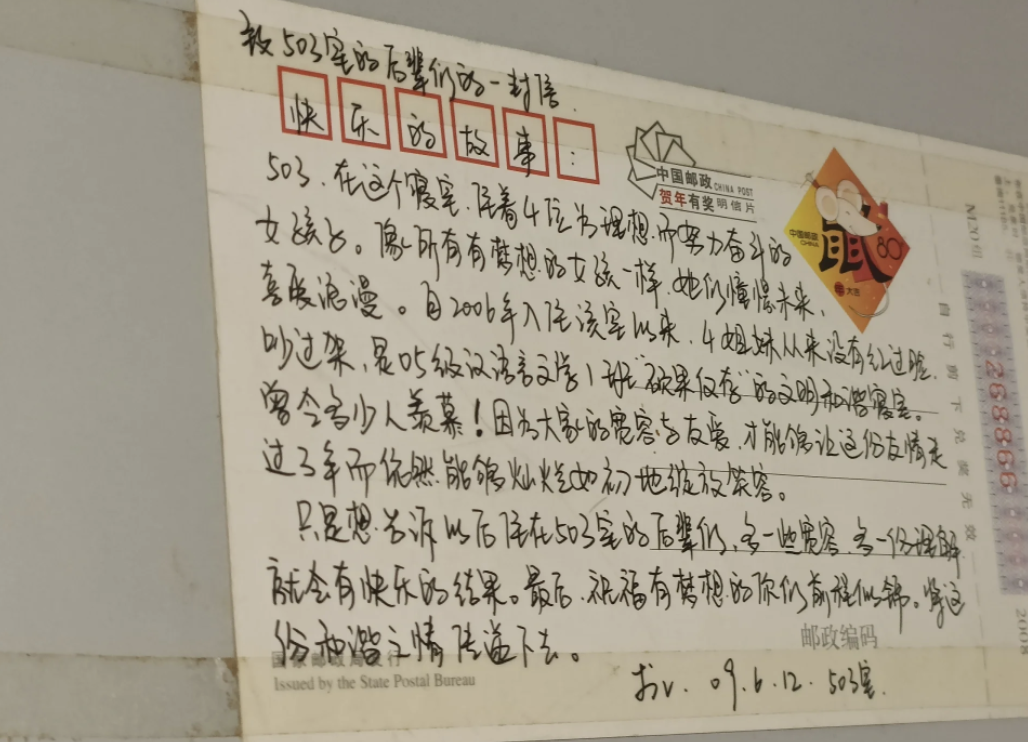 致503室的后辈们的一封信.
快乐的故事:
503.在这个寝室,住着4位为理想而努力奋斗的
女孩子。像所有有梦想的女孩一样,她们憧憬未来,
喜爱浪漫。自2006年入住该室以来,4姐妹从来没有红过脸.
吵过架,是05级汉语言文学1班"硕果仅存"的文明和谐寝室。
曾令多少人羡慕!因为大家的宽容与友爱,才能够让这份友情走
过3年而依然能够灿烂如初地绽放笑容。
只是想告诉以后住在503室的后辈们,多一些宽容,多一份理解
就会有快乐的结果。最后,祝福有梦想的你们前程似锦。将这
份和谐之情传递下去。
09.6.12. 503室.
中国邮政 CHINA POST
贺年有奖 明信片
中国邮政
CHINA
鼠
80
大吉
自行剪下兑奖无效
268866
2008
邮政编码
国家邮政局发行
Issued by the State Postal Bureau